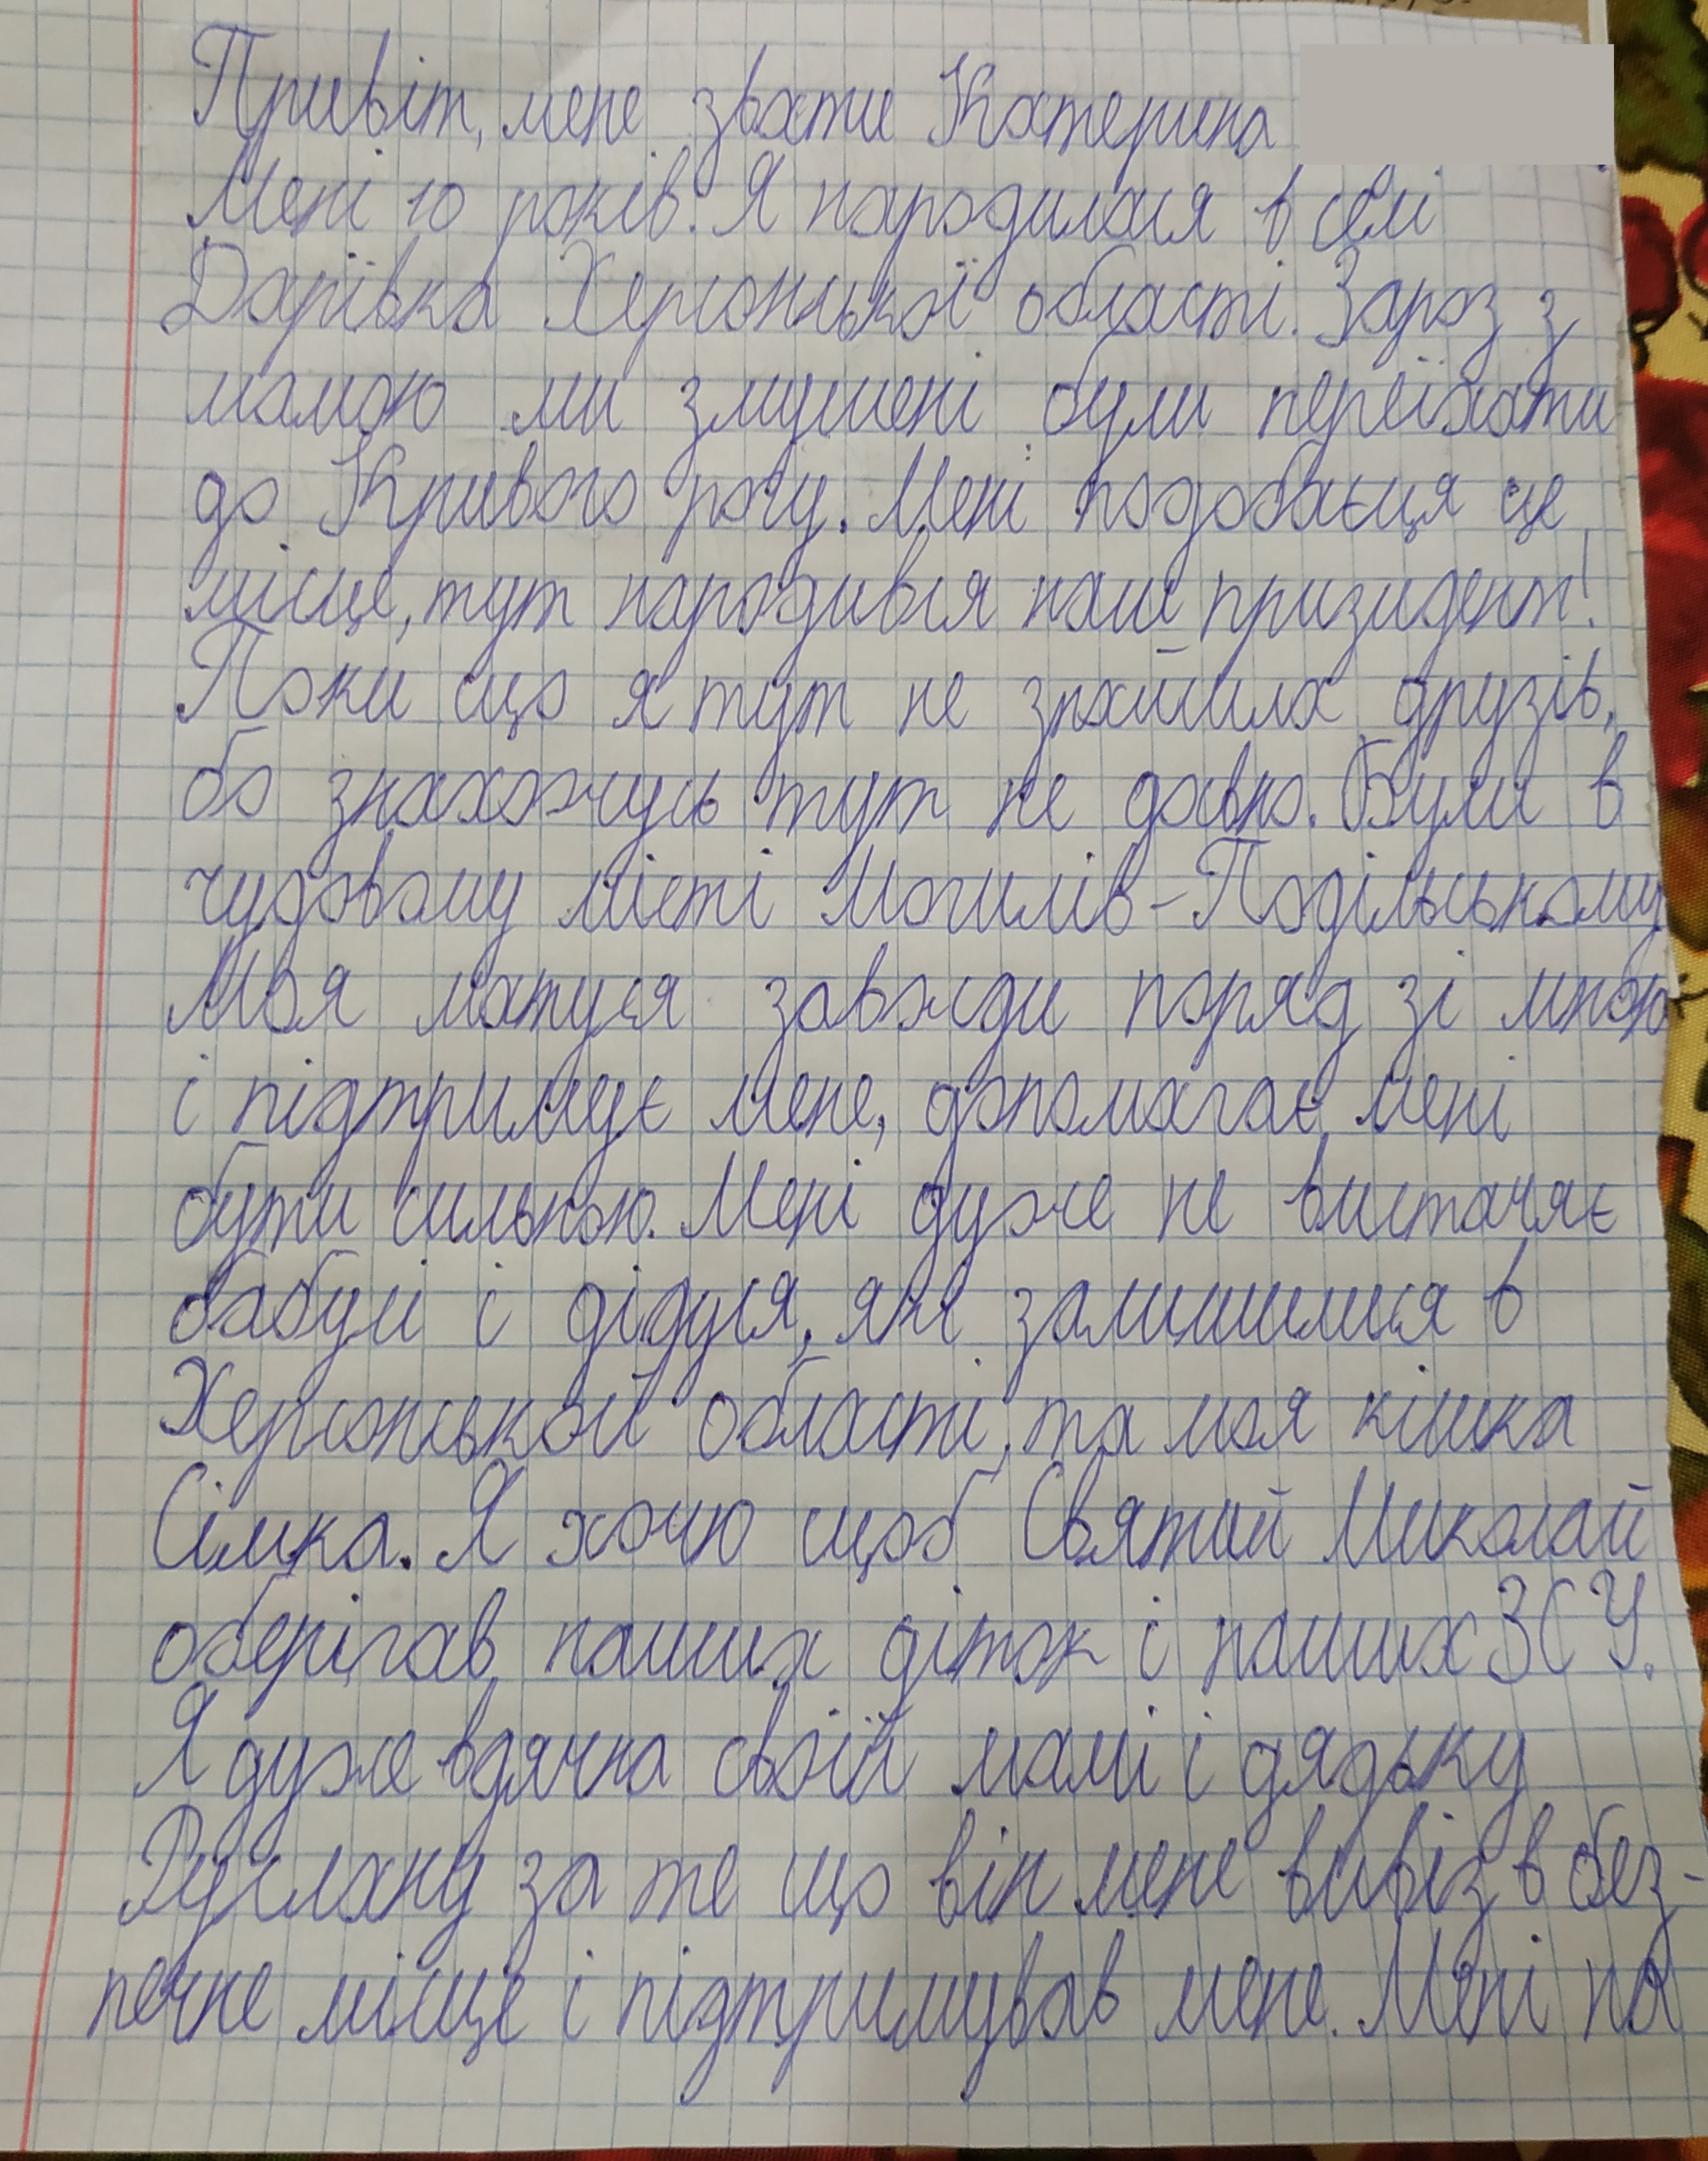 Привіт, мене звати Катерина
Мені 10 років. Я народилася в селі
Дар'ївка Херсонської області. Зараз з
мамою ми змушені були переїхати
до Кривого рогу. Мені подобаєця це
місце, тут народився наш призидент!
Поки що я тут не знайшла друзів,
бо знахожусь тут не давно. Були в
чудовому місті Могилів-Подільському
Моя матуся завжди поряд зі мною
і підтримує мене, допомагає мені
бути сильною. Мені дуже не вистачає
бабусі і дідуся, які залишилися в
Херсонській області, та моя кішка
Сімка. Я хочу щоб Святий Миколай
оберігав наших діток і наших ЗСУ.
Я дуже вдячна своїй мамі і дядьку
Руслану за те що він мене вивіз в без-
печне місце і підтримував мене. Мені на